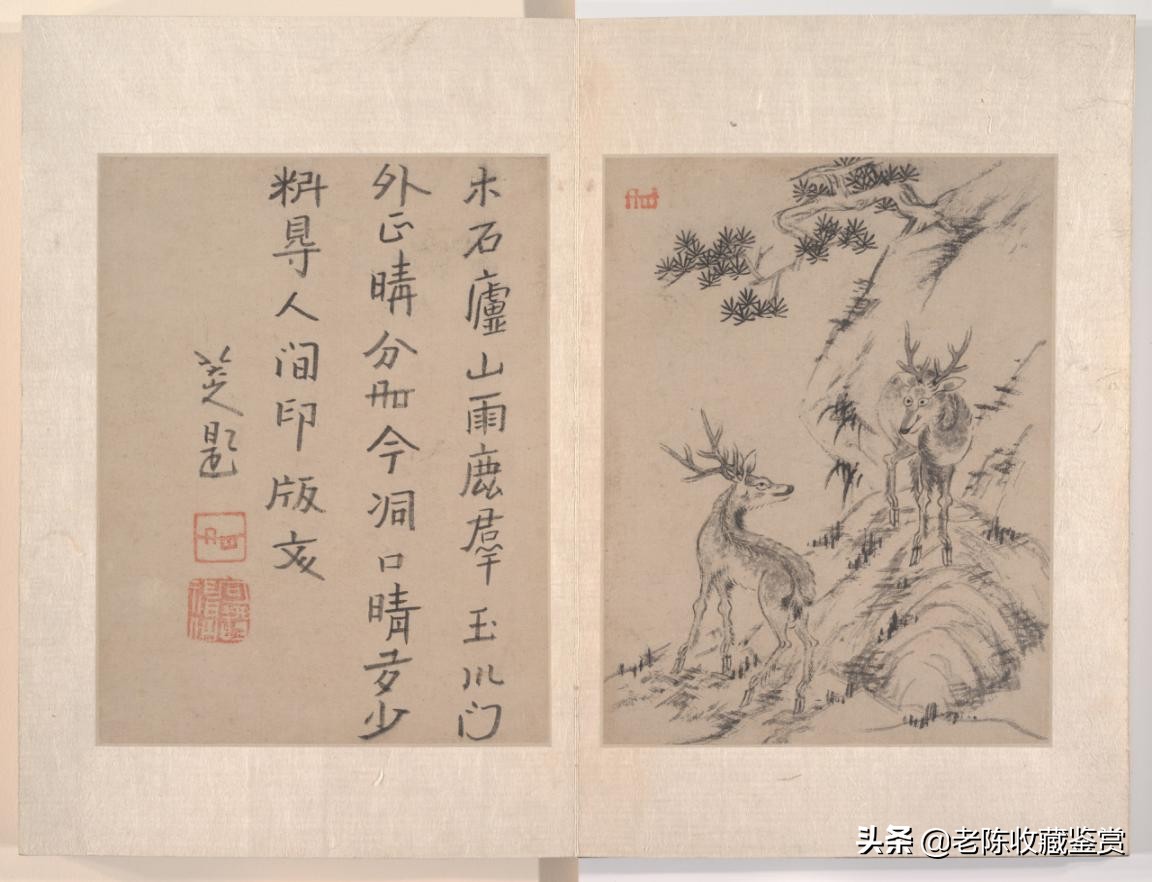 木石廬山雨鹿羣玉川门
外正晴分今洞口晴多少
料㝵人间印版
题
头条 @老陈收藏鉴赏